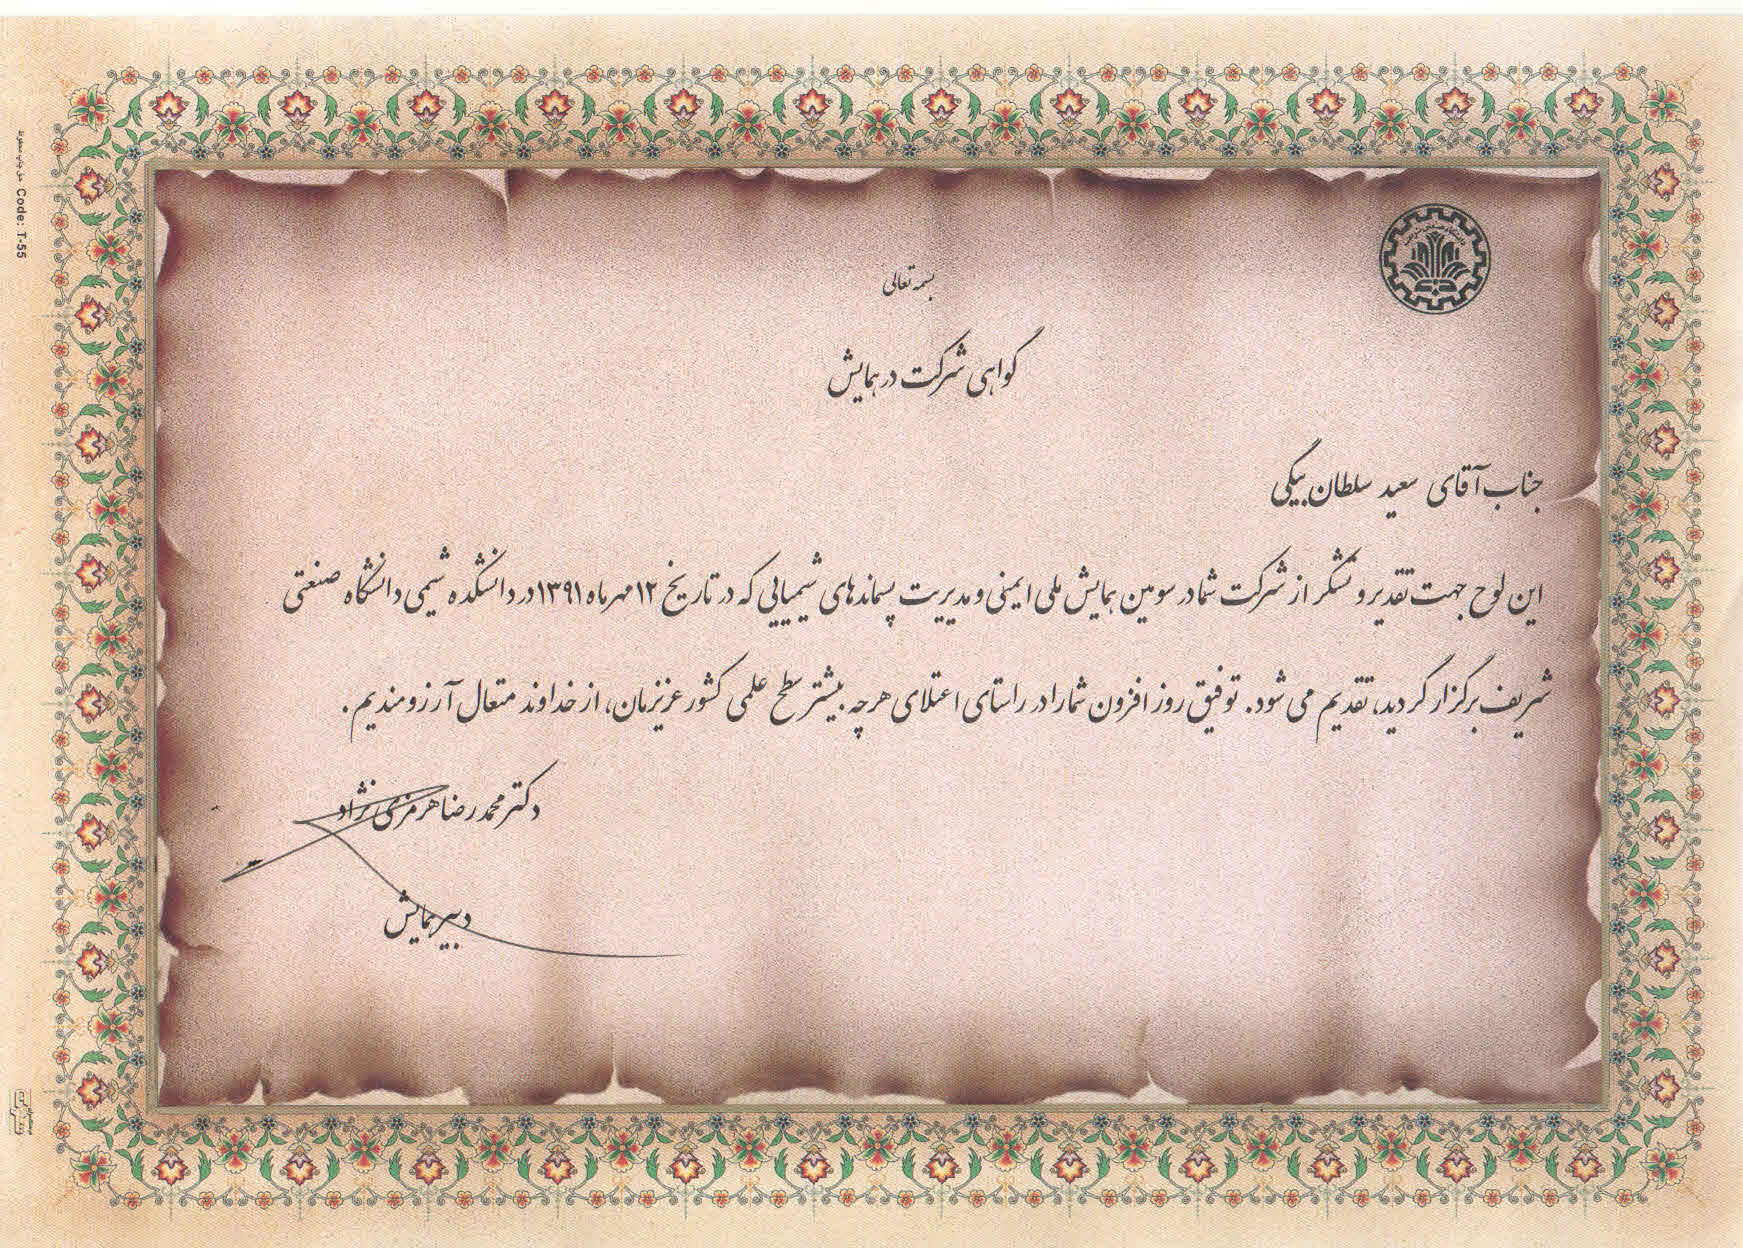 بسمه تعالی
گواهی شرکت در همایش
جناب آقای سعید سلطان بیگی
این لوح جهت تقدیر و تشکر از شرکت شما در سومین همایش ملی ایمنی و مدیریت پسماندهای شیمیایی که در تاریخ ۱۲ مهرماه ۱۳۹۱ در دانشکده شیمی دانشگاه صنعتی
شریف برگزار گردید، تقدیم می شود. توفیق روز افزون شما را در راستای اعتلای هرچه بیشتر سطح علمی کشور عزیزمان، از خداوند متعال آرزومندیم.
دکتر محمدرضا هرمزی نژاد
دبیر همایش
Code: T-55